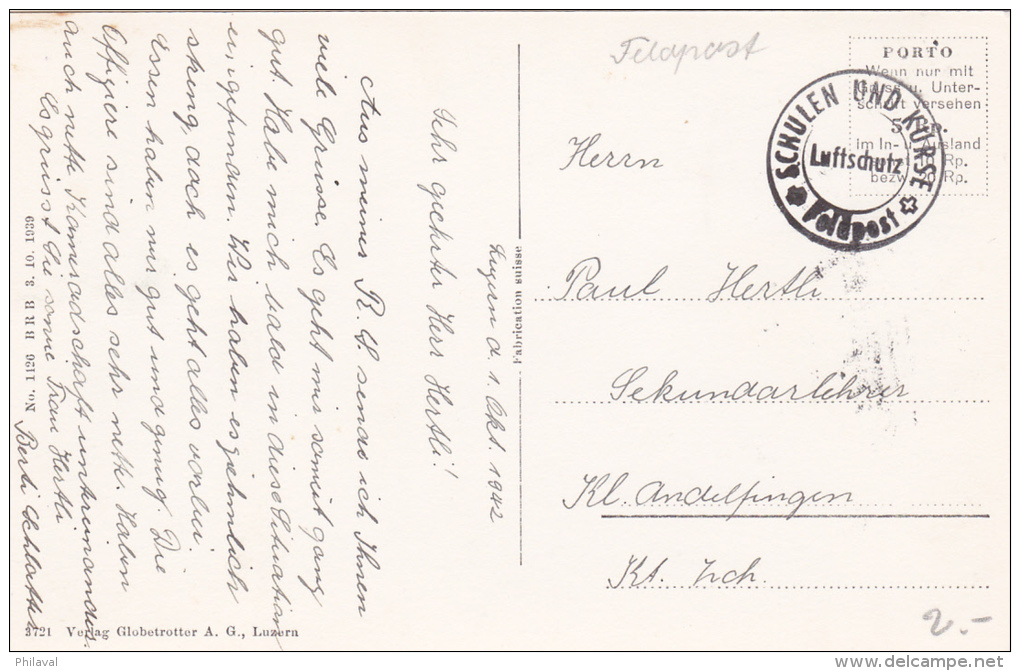 Luzern d. 1. Okt. 1942
Sehr geehrter Herr Hertli!
Aus meiner R. S. sende ich Ihnen
viele Grüsse. Es geht mir soweit ganz
gut. Habe mich bald in diese Situation
eingefunden. Wir haben es ziehmlich
streng, doch es geht alles vorbei.
Essen haben wir gut und genug. Die
Offiziere sind alles sehr nette. Haben
auch nette Kameradschaft untereinander.
Es grüsst Sie sowie Frau Hertli
Berti Schlatter
No. 1126 B R B 3. 10. 1939
3721 Verlag Globetrotter A. G., Luzern
Fabrication suisse
Feldpost
PORTO
Wenn nur mit
Gruss u. Unter-
schrift versehen
5 Rp.
im In- u. Ausland
Rp.
bezw. 20 Rp.
SCHULEN UND KURSE
Luftschutz
Feldpost
Herrn
Paul Hertli
Sekundarlehrer
Kl. Andelfingen
Kt. Zch.
2.-
Philaval
delcampe.net